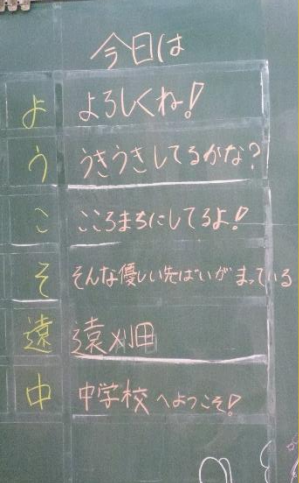 今日は
よ よろしくね!
う うきうきしてるかな?
こ こころまちにしてるよ!
そ そんな優しい先ぱいがまっている
遠 遠刈田
中 中学校へようこそ!